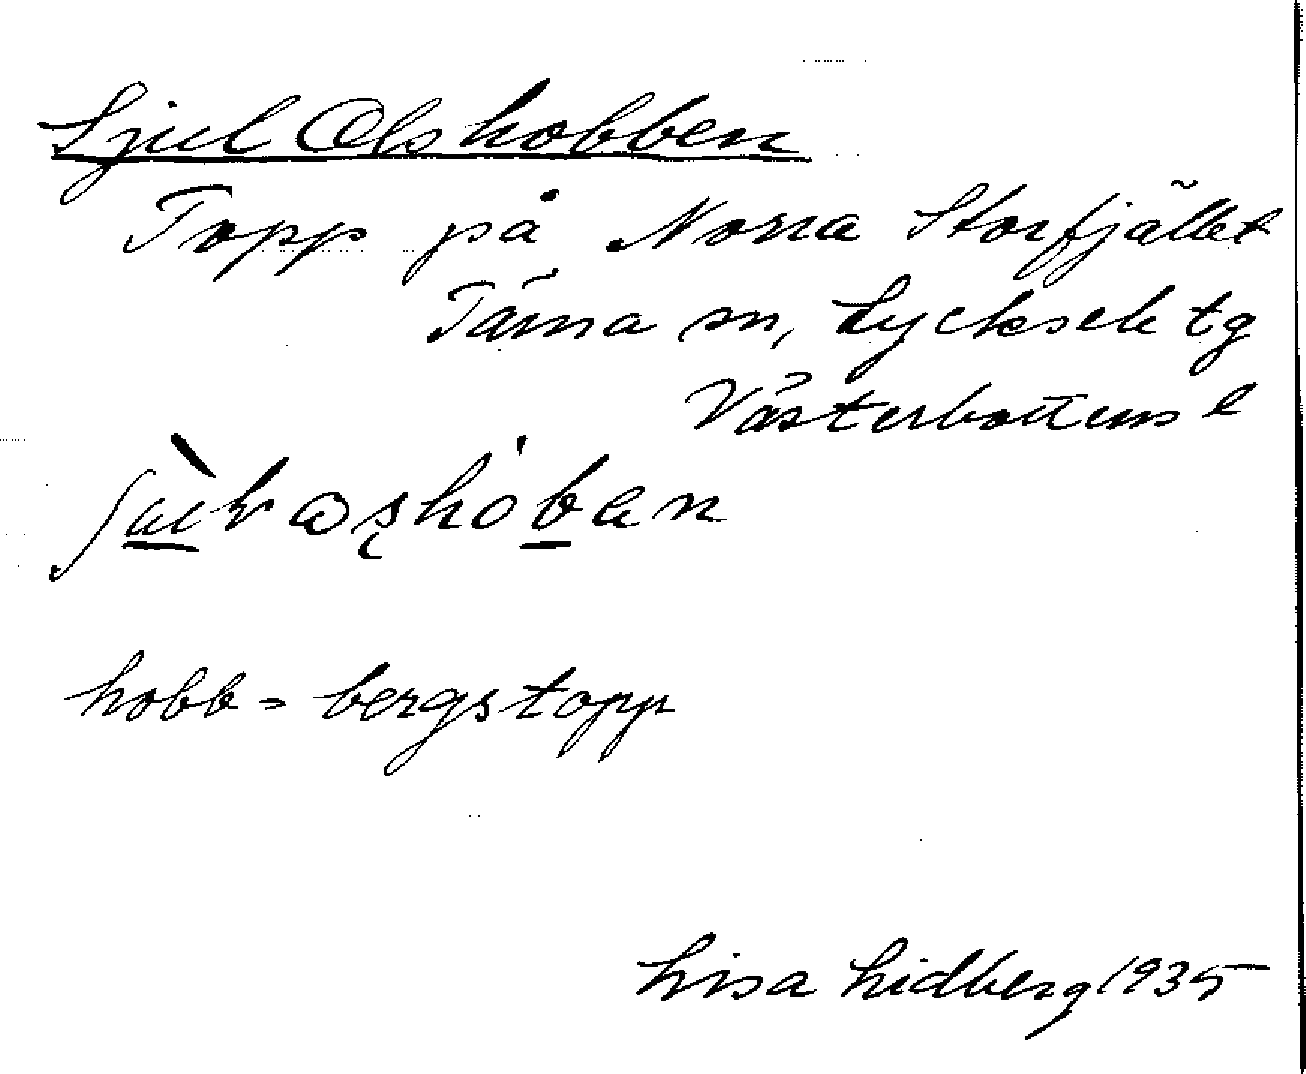 Ljul Olshobben
Topp på Norra Storfjället
Tärna sn, Lycksele tg
Västerbottens l
hobb = bergstopp
Lisa Lidberg 1935